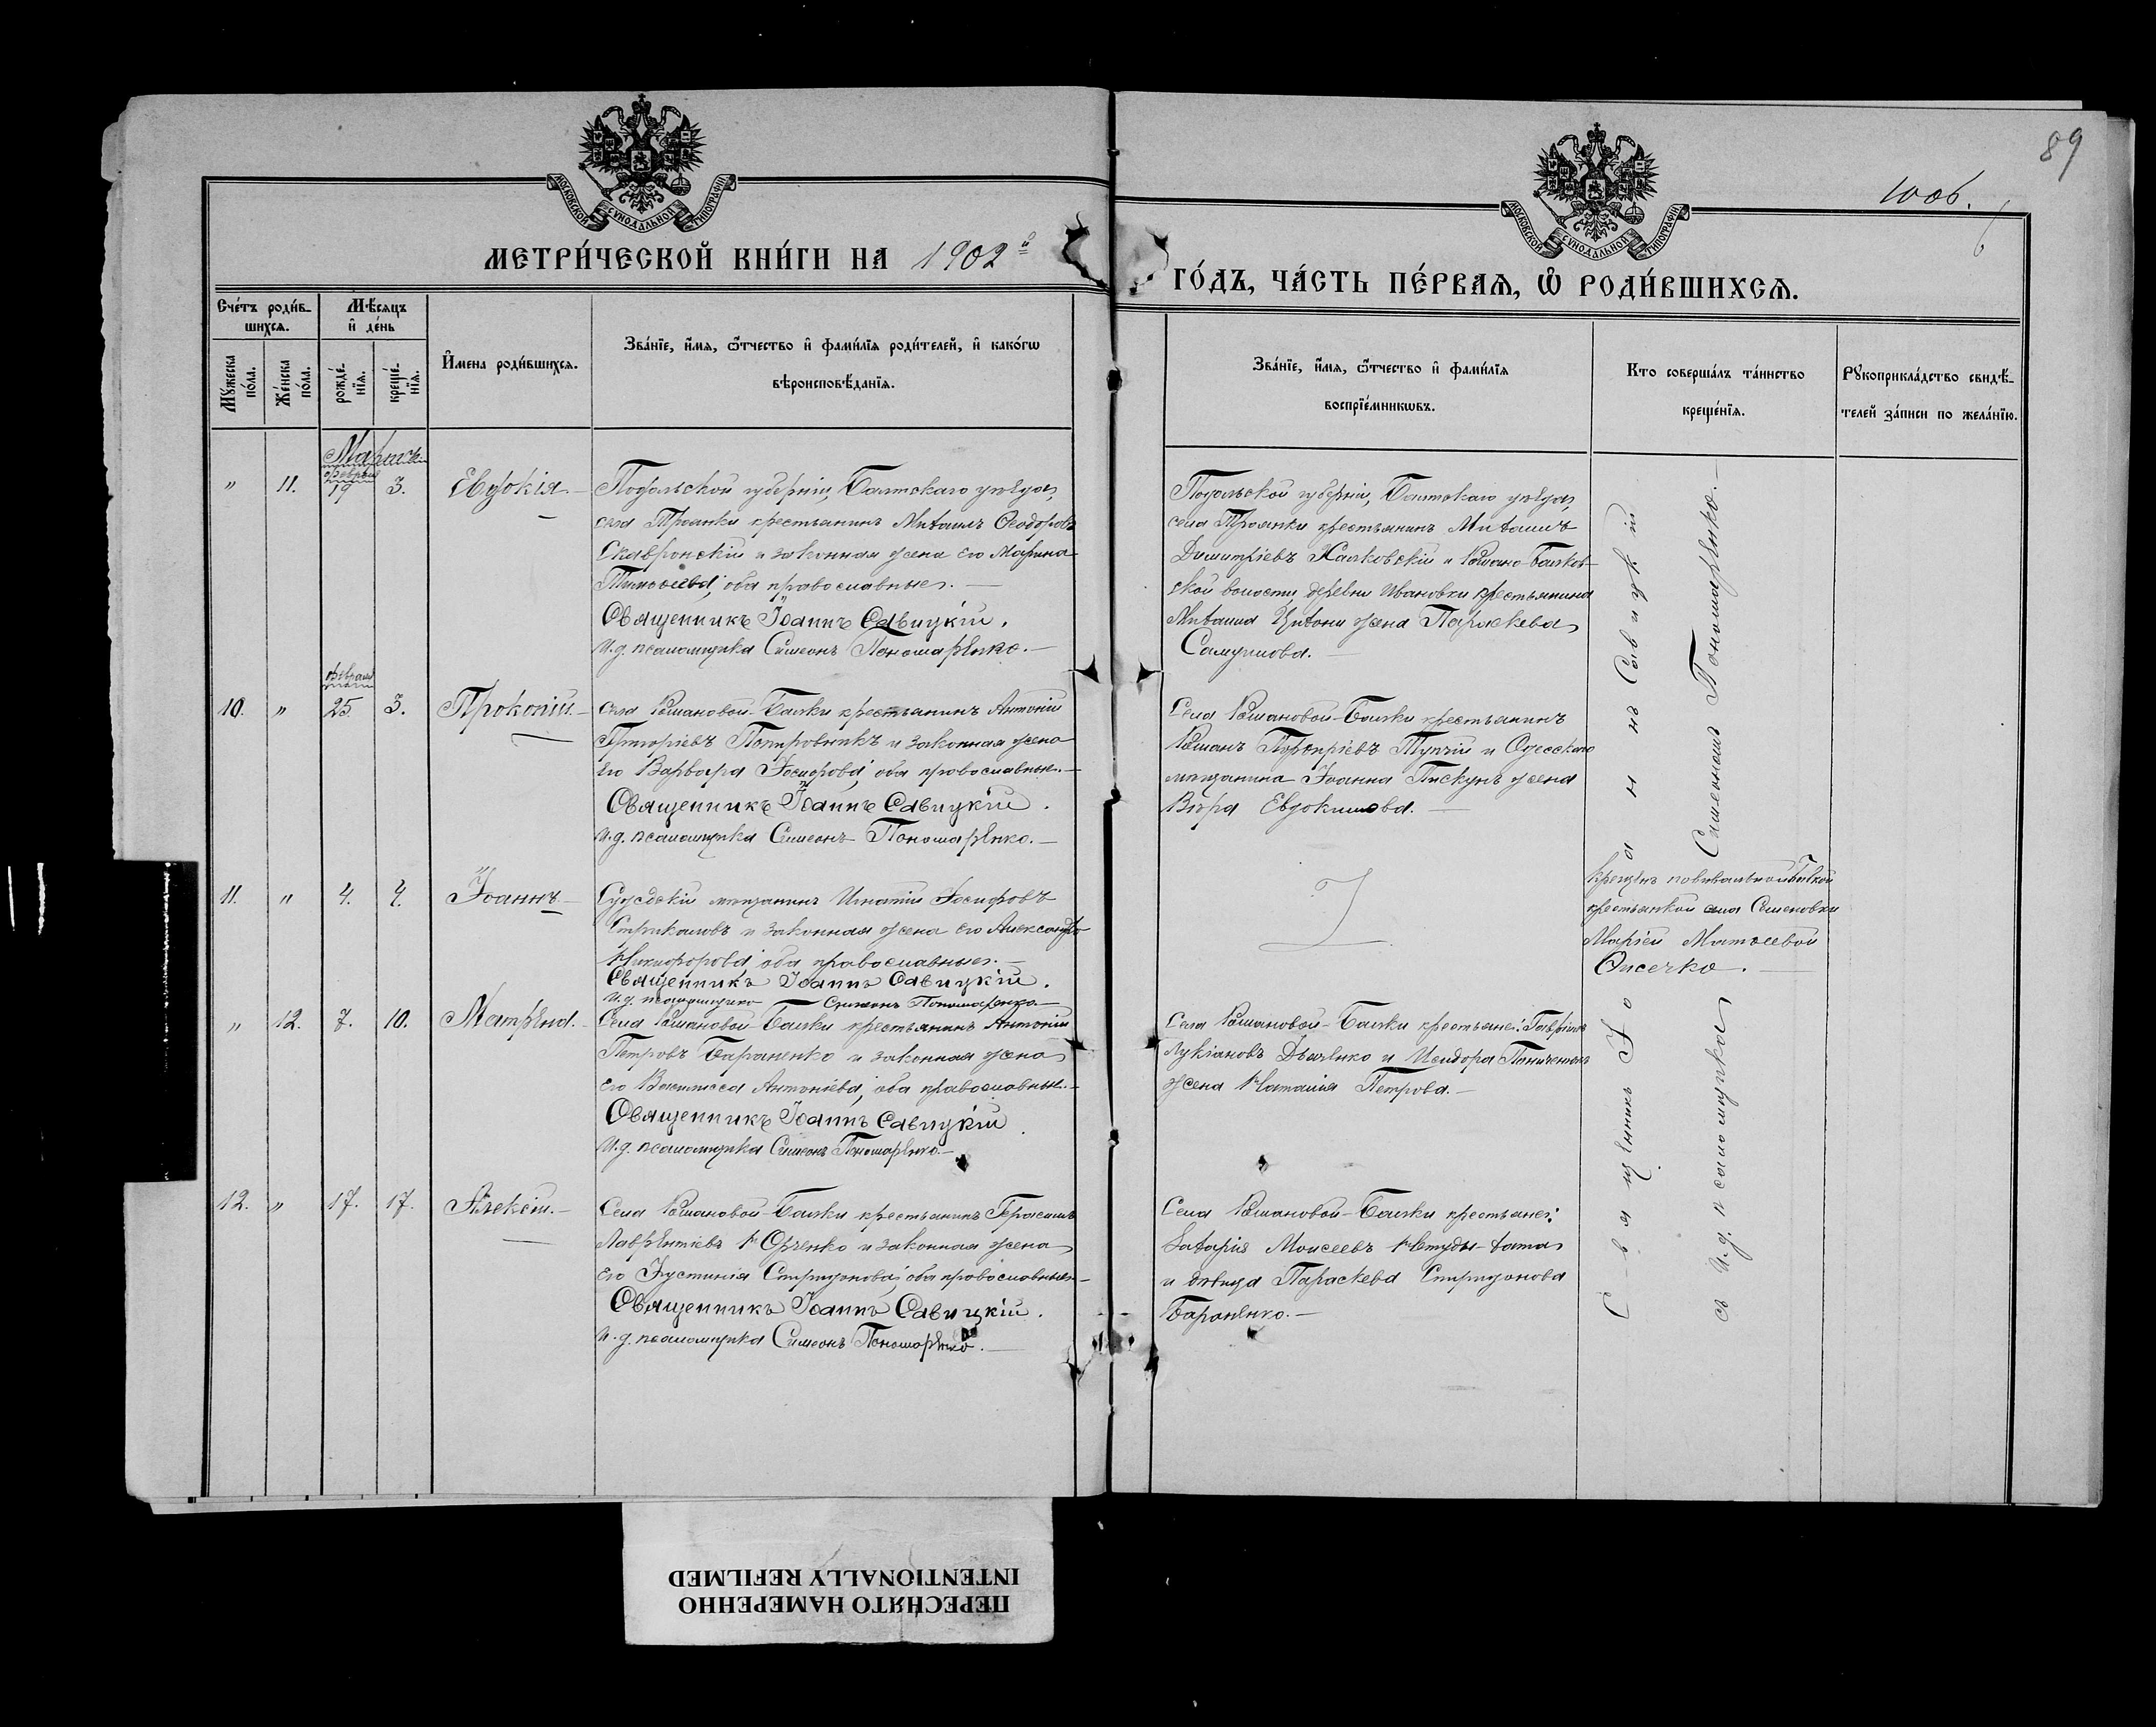 89
1006.
МОСКОВСКОЙ СѴНОДАЛЬНОЙ ТИПОГРАФІИ
МОСКОВСКОЙ СѴНОДАЛЬНОЙ ТИПОГРАФІИ
МЕТРИ́ЧЕСКОЙ КНИ́ГИ НА 1902й
ГО́ДЪ, ЧА́СТЬ ПЕ́РВАѦ, Ѽ РОДИ́ВШИХСѦ.
Сче́тъ роди́в-
шихсѧ.
Мѣ́сѧцъ
и҆ де́нь
Мꙋ́жеска
по́ла.
Же́нска
по́ла.
рожде́-
нїѧ.
креще́-
нїѧ.
И҆мена роди́вшихсѧ.
Зва́нїе, и҆́мѧ, ѻ҆́тчество и҆ фами́лїѧ роди́телей, и҆ како́гѡ
вѣроисповѣ́данїѧ.
Зва́нїе, и҆́мѧ, ѻ҆́тчество и҆ фами́лїѧ
воспрїе́мникѡвъ.
Кто соверша́лъ та́инство
креще́нїѧ.
Рꙋкоприкла́дство свидѣ́-
телей за́писи по жела́нїю.
Мартъ
февраля
" 11. 19 3. Евдокія.
Подольской губерніи Балтскаго уѣзда,
села Троянки крестьянинъ Михаилъ Ѳеодоровъ
Скавронскій и законная жена его Марина
Тимоѳеева, оба православные.
Священникъ Іоаннъ Савицкій.
И. д. псаломщика Симеонъ Пономаренко.
Подольской губерніи, Балтскаго уѣзда,
села Троянки крестьянинъ Михаилъ
Димитріевъ Халковскій и Романо-Балков-
ской волости, деревни Ивановки крестьянина
Михаила жена Параскева
Самуилова.
февраля
10. " 25 3. Прокопій.
Села Романовой-Балки крестьянинъ Антоній
Григоріевъ Попировникъ и законная жена
его Варвара Іосифова, оба православные.
Священникъ Іоаннъ Савицкій.
И. д. псаломщика Симеонъ Пономаренко.
Села Романовой-Балки крестьянинъ
Романъ Порфиріевъ Тупчій и Одесскаго
мѣщанина Іоанна Пискунъ жена
Вѣра Евдокимова.
11. " 4. 4. Іоаннъ.
Суждскій мѣщанинъ Игнатій Іосифовъ
Стрикаловъ и законная жена его Александра
Никифорова, оба православные.
Священникъ Іоаннъ Савицкій.
И. д. псаломщика Симеонъ Пономаренко.
Крещенъ повивальной бабкой
крестьянкой села Семеновки
Маріей Матѳеевой
Онсечко.
" 12. 7. 10. Матрена.
Села Романовой-Балки крестьянинъ Антоній
Петровъ Бараненко и законная жена
его Василисса Антоніева, оба православные.
Священникъ Іоаннъ Савицкій
И. д. псаломщика Симеонъ Пономаренко.
Села Романовой-Балки крестьяне: Гавріилъ
Лукіановъ Дьяченко и Исидора
жена Наталія Петрова.
12. " 17. 17. Алексій.
Села Романовой-Балки крестьянинъ Герасимъ
Лаврентіевъ Юрченко и законная жена
его Іустинія Спиридонова, оба православные.
Священникъ Іоаннъ Савицкій.
И. д. псаломщика Симеонъ Пономаренко.
Села Романовой-Балки крестьяне:
Захарія Моисеевъ Нетуды-хата
и дѣвица Параскева Спиридонова
Бараненко.
Священникъ Іоаннъ Савицкій
съ и. д. псаломщика Симеономъ Пономаренко.
ПЕРЕСНЯТО НАМЕРЕННО
INTENTIONALLY REFILMED